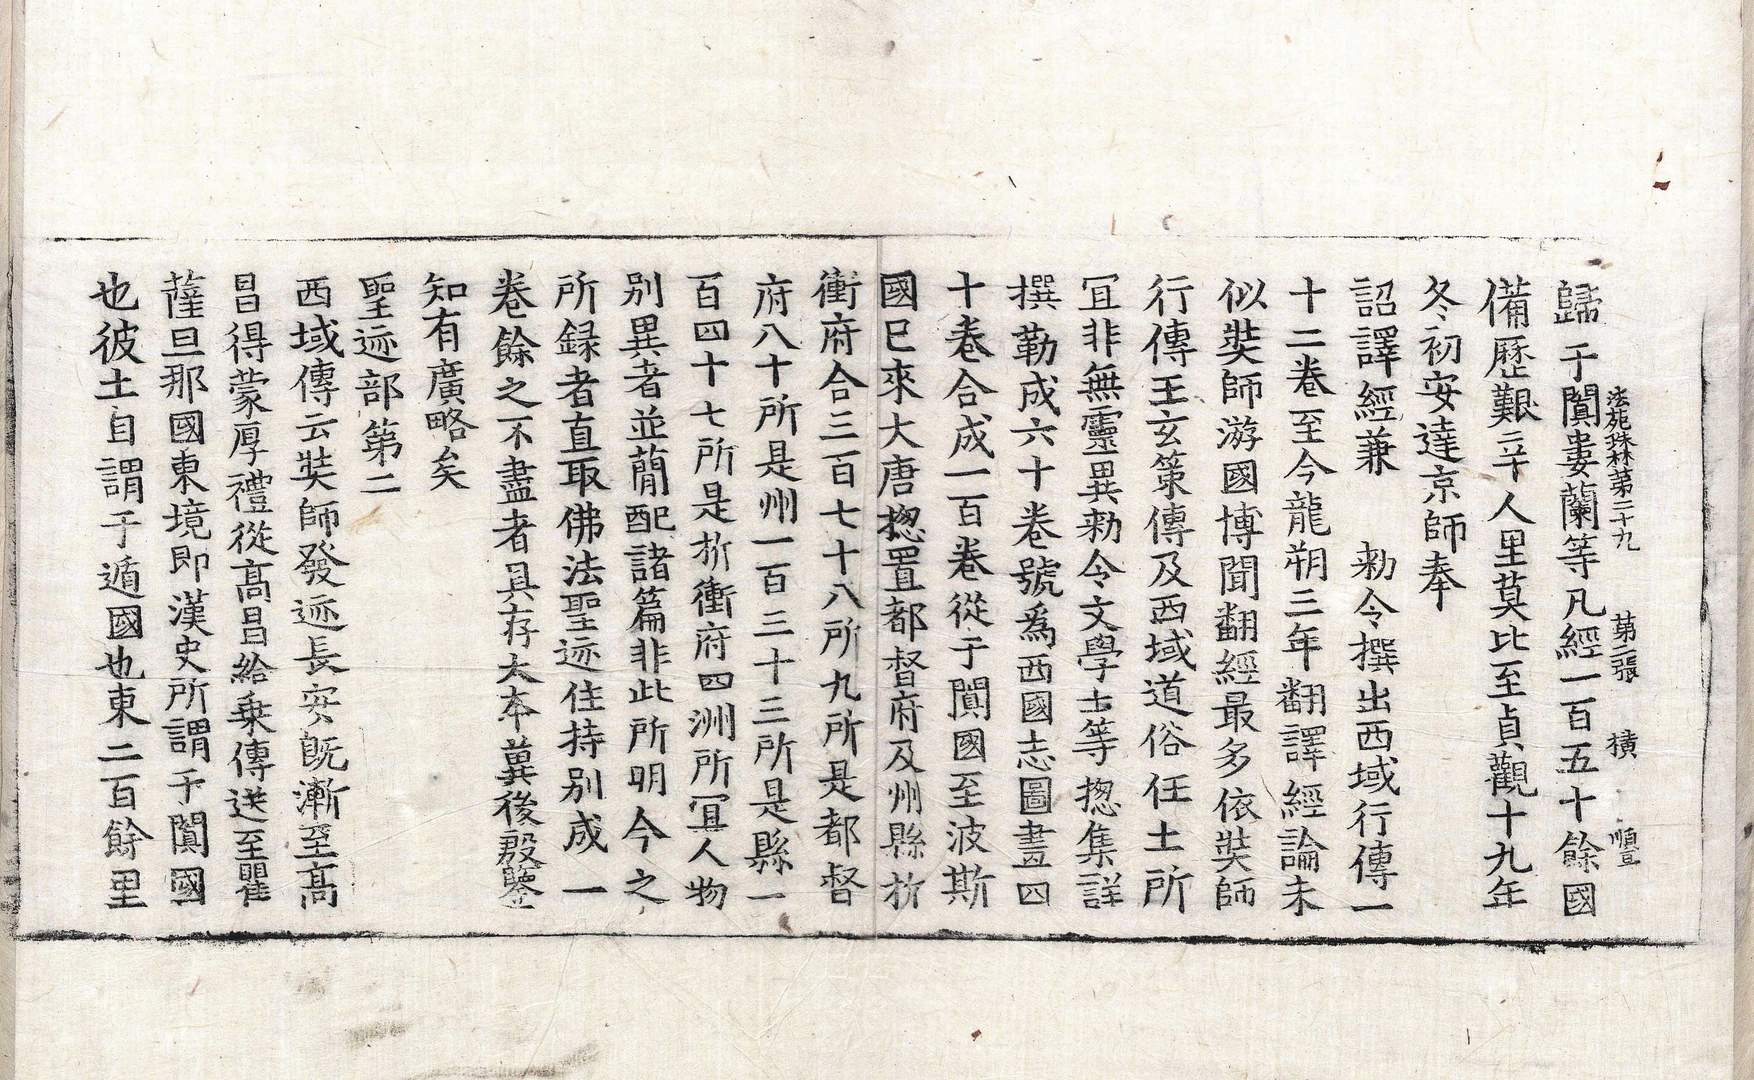 法苑珠林第二十九　第二張　横　順亘
歸于闐婁蘭等凡經一百五十餘國
備歷艱辛人里莫比至貞觀十九年
冬初安達京師奉
詔譯經兼　勑令撰出西域行傳一
十二卷至今龍朔三年翻譯經論未
似奘師游國博聞翻經最多依奘師
行傳王玄策傳及西域道俗任土所
冝非無靈異勑令文學士等揔集詳
撰勒成六十卷號爲西國志圖畫四
十卷合成一百卷從于闐國至波斯
國已來大唐揔置都督府及州縣折
衝府合三百七十八所九所是都督
府八十所是州一百三十三所是縣一
百四十七所是折衝府四洲所冝人物
別異者並蕳配諸篇非此所明今之
所録者直取佛法聖迹住持別成一
卷餘之不盡者具存大夲兾後殷鑒
知有廣略矣
聖迹部第二
西域傳云奘師發迹長安旣漸至高
昌得蒙厚禮從高昌給乗傳送至瞿
薩旦那國東境即漢史所謂于闐國
也彼土自謂于遁國也東二百餘里